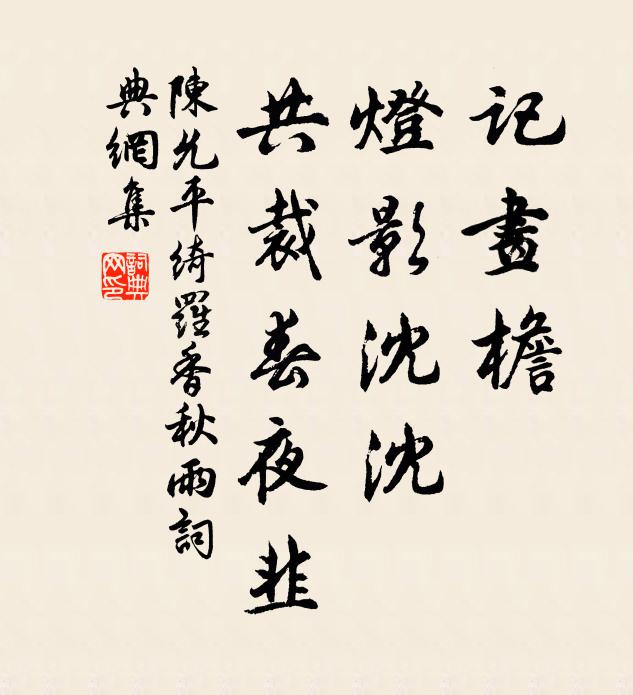 記畫檐
燈影沈沈
共裁春夜韭
陳允平綺羅香秋雨詞
典網集
詞典
网印